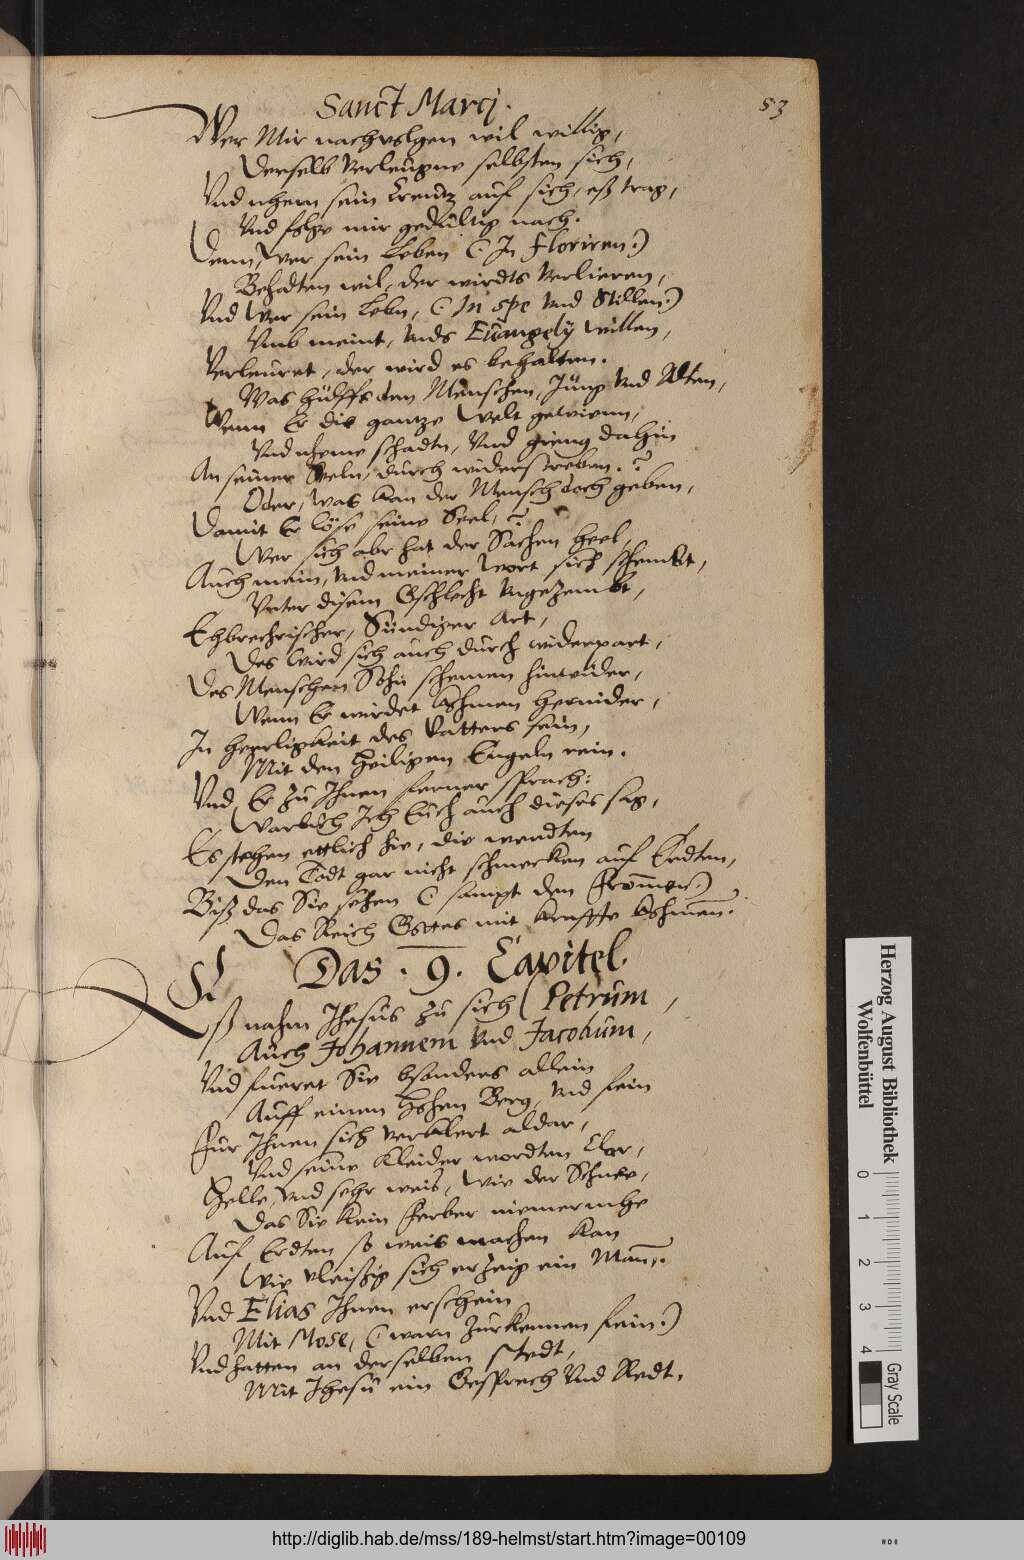 Sanct Marcj.
53
Wer Mir nachvolgen wil willig,
Derselb Verleugne selbsten sich,
Vnd nhem sein Creutz auf sich, eß trag,
Vnd folge mir gedultig nach.
Denn, wer sein Leben (: In floriren :)
Behalten wil, der wirdts Verlieren,
Vnd Wer sein Lebn, (: In spe Vnd Stillen :)
Vmb meint, Vnds Euangely willen,
Verleuret, der wird es behalten.
Was hülffs dem Menschen, Jung Vnd Alten,
Wenn Er die gantze Welt gewienn,
Vnd nheme schadn, Vnd gieng dahin
An seiner Seeln, durch widerstreben.?
Oder, Was kan der Mensch doch geben,
Damit Er löse seine Seel,?
Wer sich abr hat der Sachen heel,
Auch mein, Vnd meiner Wort sich schembt,
Vnter disem Gschlecht Vngezembt,
Ehbrechrischer, Sündiger Art,
Des Wird sich auch durch widerpart,
Des Menschen Sohn schemen hinwider,
Wenn Er wirdet khomen hernider,
In herrligkeit des Vatters sein,
Mit den heiligen Engeln rein.
Vnd Er zu Ihnen ferner sprach:
Warlich Ich Euch auch dieses sag,
Es stehen ettlich hie, die werdten
Den Todt gar nicht schmecken auf Erdten,
Biß das Sie sehen (: sampt den Fromen :)
Das Reich Gottes mit kraffte khomen.
Das . 9. Capitel.
Eß nahm Jhesus zu sich Petrum,
Auch Johannem Vnd Jacobum,
Vnd fueret Sie bsonders allein
Auff einen Hohen Berg, Vnd fein
Für Ihnen sich verklert aldar,
Vnd seine Kleider wordten Clar,
Helle, Vnd sehr weis, Wie der Schnee,
Das Sie kein Ferber niemermehe
Auf Erdten so weis machen kan
Wie vleissig sich erzeig ein Mann.
Vnd Elias Ihnen erschein
Mit Mose, (: warn zurkennen fein :)
Vnd hatten an derselben Stedt,
Mit Jhesu ein Gesprech Vnd Redt.
Herzog August Bibliothek
Wolfenbüttel
0 1 2 3 4
Gray Scale
http://diglib.hab.de/mss/189-helmst/start.htm?image=00109